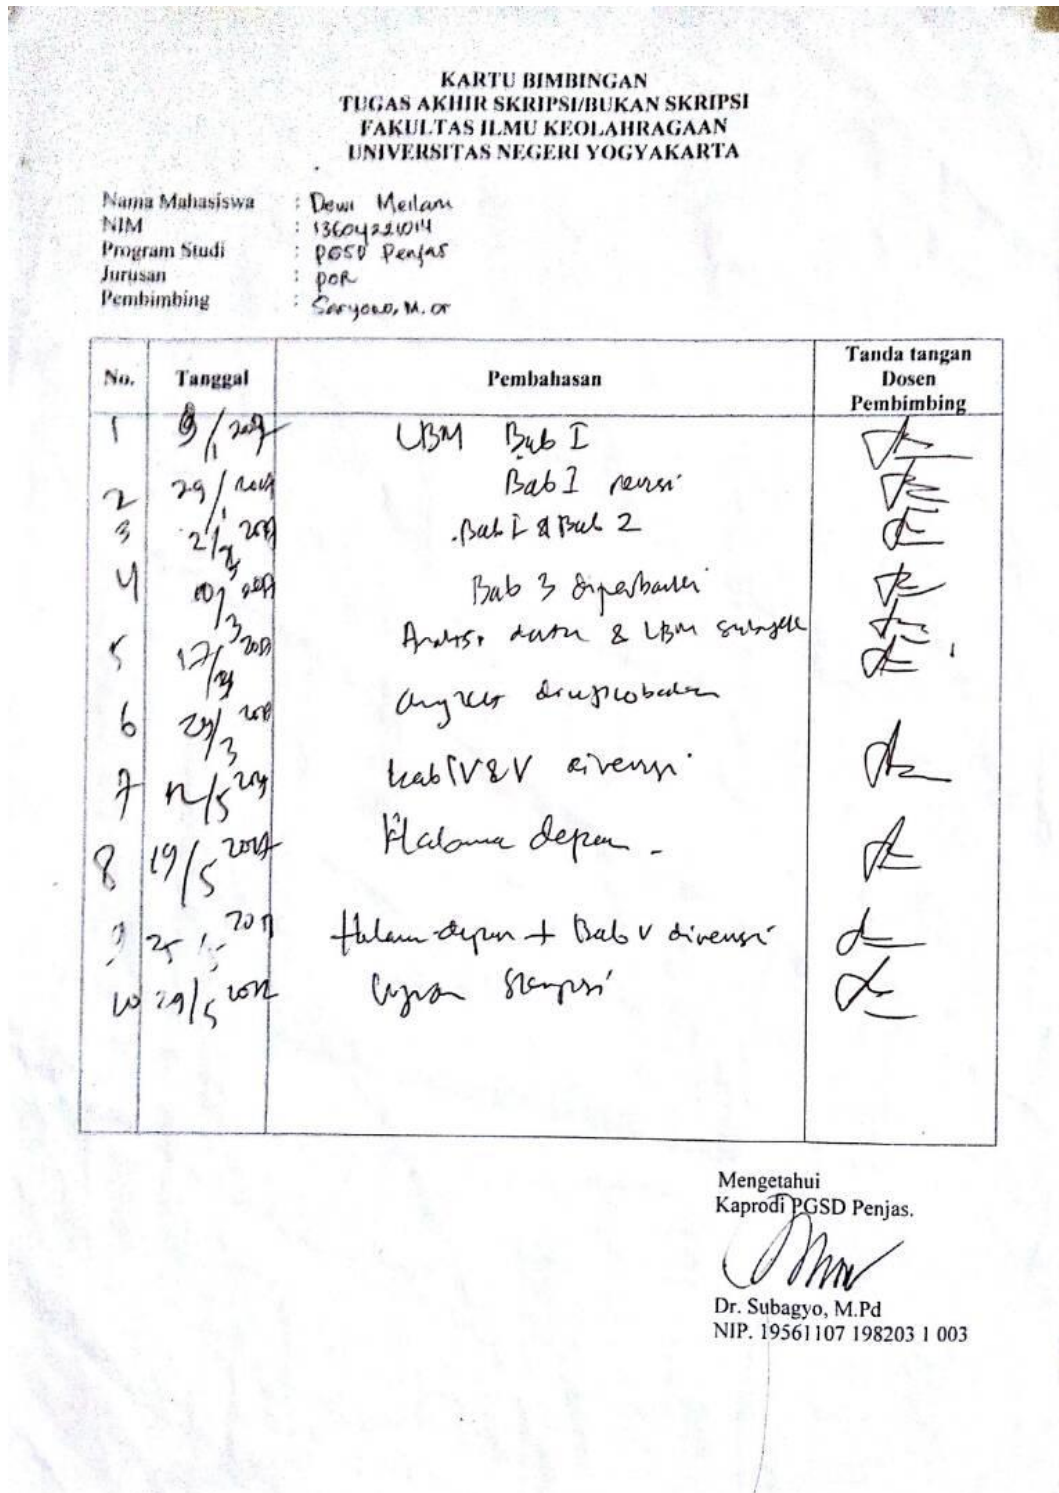 KARTU BIMBINGAN
TUGAS AKHIR SKRIPSI/BUKAN SKRIPSI
FAKULTAS ILMU KEOLAHRAGAAN
UNIVERSITAS NEGERI YOGYAKARTA
Nama Mahasiswa : Dewi Meilani
NIM : 13604221014
Program Studi : PGSD Penjas
Jurusan : POR
Pembimbing : Saryono, M. or
No. Tanggal Pembahasan Tanda tangan
Dosen
Pembimbing
1 9/1 LBM Bab I
2 29/1 Bab I revisi
3 Bab I & Bab 2
4 10/3 Bab 3 diperbaiki
5 17/3 data & LBM
6 /3 2017
7 12/5 bab IV & V direvisi
8 19/5 2017 Halaman depan -
9 25/5 2017 Halaman depan + Bab V direvisi
10 29/5 2017
Mengetahui
Kaprodi PGSD Penjas.
Dr. Subagyo, M.Pd
NIP. 19561107 198203 1 003